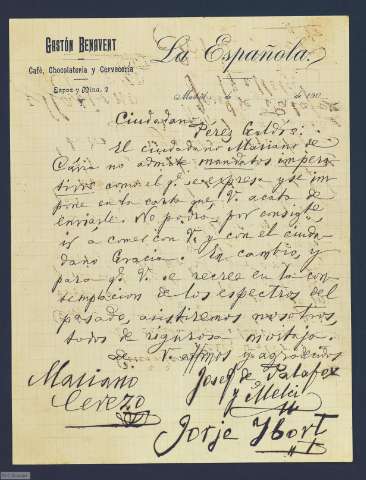 GASTÓN BENAVENT
La Española.
Café, Chocolatería y Cervecería
Espoz y Mina, 2
Madrid de 190
Ciudadano Pérez Galdós:
El ciudadano Mariano de
Cávia no admite mandatos impera
tivos como el q. se expresa y se im
pone en la carta que V. acaba de
enviarle. No podrá, por consigte,
ir á comer con V. y con el ciuda-
daño Gracia. En cambio, y
para q. V. se recree en la con-
templación de los espectros del
pasado, asistiremos nosotros,
todos de rigurosa mortaja.
De V. affmos y agradecidos
Mariano
Cerezo
José de Palafox
y Melci
Jorje Ybort